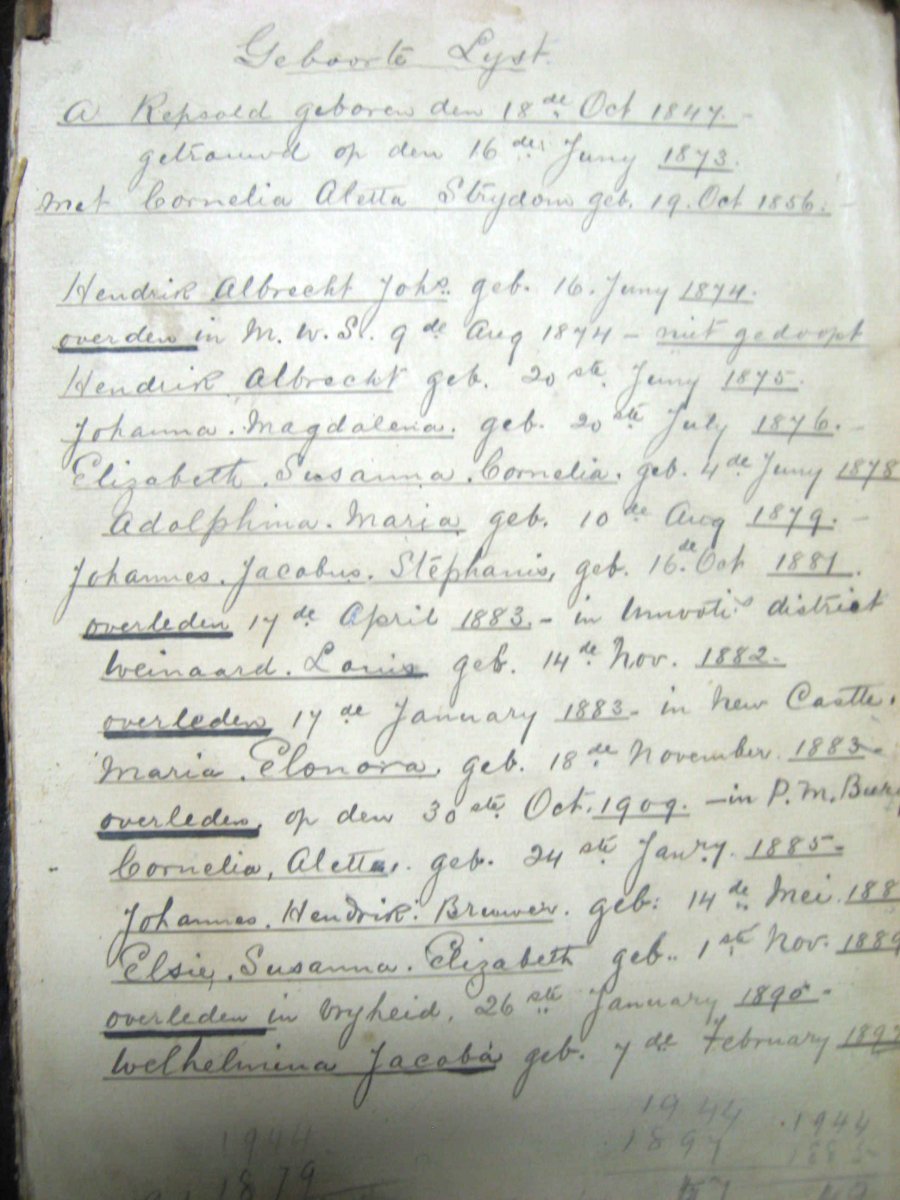 Geboorte Lyst.
A Repsold geboren den 18de Oct 1847. -
getrouwd op den 16de Juny 1873.
met Cornelia Aletta Strydom geb. 19. Oct 1856. -
Hendrik Albrecht Johs. geb. 16. Juny 1874.
overden in M. W. S. 9de Aug 1874 - niet gedoopt
Hendrik Albrecht geb. 20ste Juny 1875.
Johanna. Magdalena. geb. 20ste July 1876. -
Elizabeth. Susanna. Cornelia. geb. 4de Juny 1878
Adolphina. Maria geb. 10de Aug 1879. -
Johannes. Jacobus. Stephanis, geb. 16de Oct 1881.
overleden 17de April 1883. - in Umvoti district
Weinaard. Louis geb. 14de Nov. 1882.
overleden 17de January 1883 - in New Castle.
Maria. Elonora. geb. 18de November 1883 -
overleden, op den 30ste Oct. 1909. - in P. M. Burg
Cornelia, Aletta,. geb. 24ste Janry. 1885 -
Johannes. Hendrik. Brewer. geb: 14de Mei 188
Elsie, Susanna. Elizabeth geb.. 1ste Nov. 1889
overleden in Vryheid. 26ste January 1895 -
Welhelmina Jacoba geb. 7de February 1897
1944 1944 1944
1879 1897 1885
57